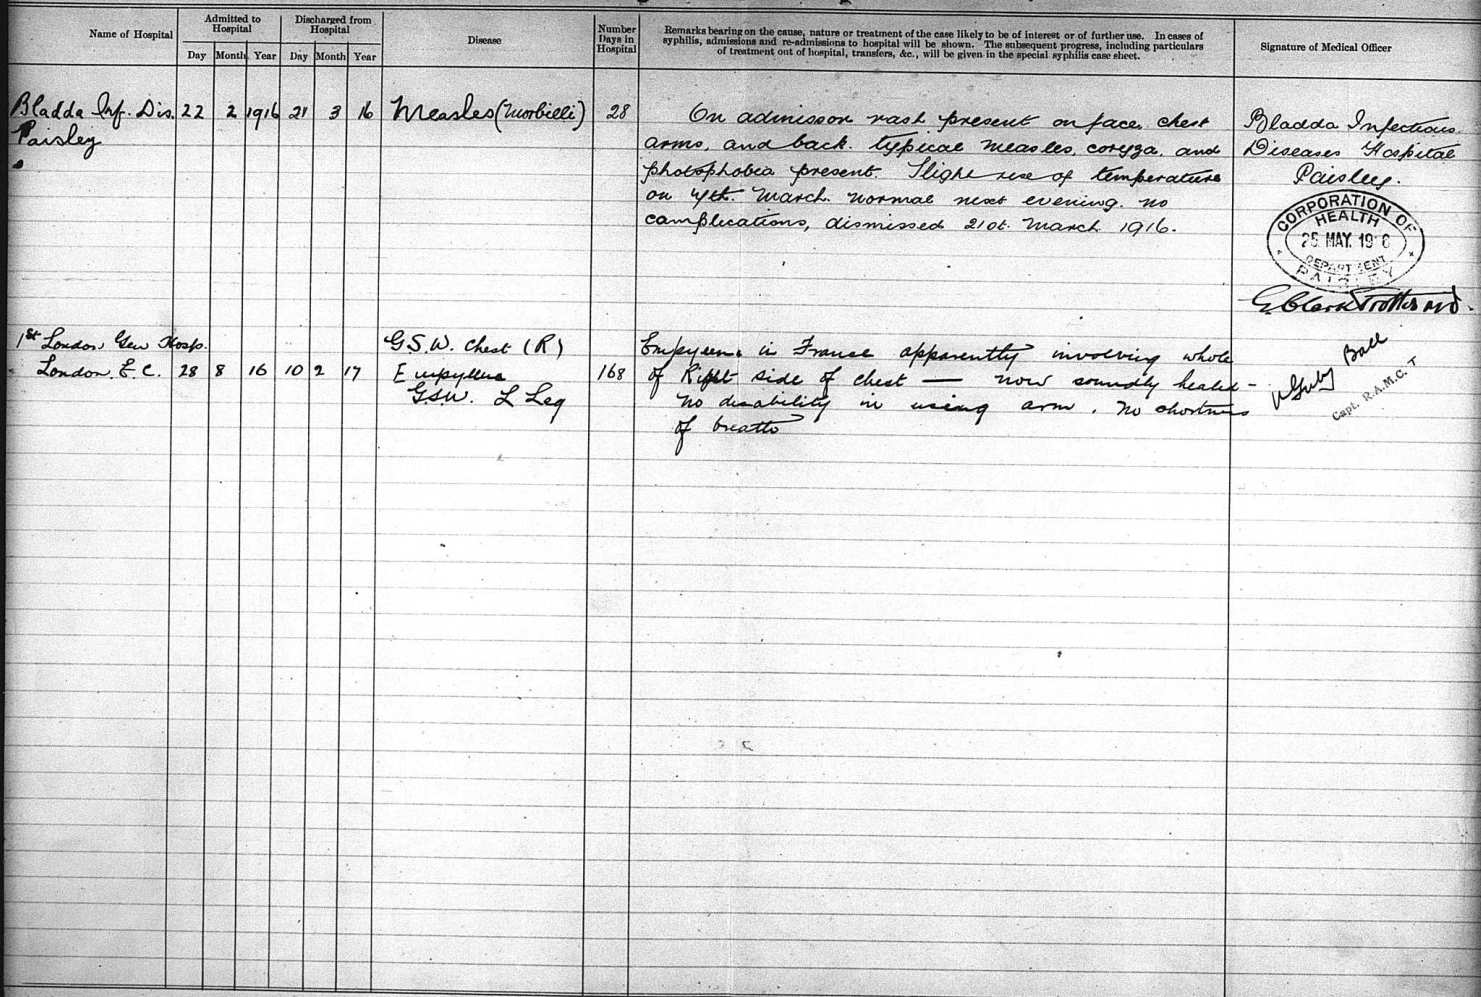 Name of Hospital
Admitted to Hospital
Discharged from Hospital
Day Month Year Day Month Year
Disease
Number Days in Hospital
Remarks bearing on the cause, nature or treatment of the case likely to be of interest or of further use. In cases of
syphilis, admissions and re-admissions to hospital will be shown. The subsequent progress, including particulars
of treatment out of hospital, transfers, &c., will be given in the special syphilis case sheet.
Signature of Medical Officer
Bladda Inf. Dis. 22 2 1916 21 3 16 Measles (Morbilli) 28
Paisley
On admission rash present on face, chest
arms, and back. typical measles, coryza, and
photophobia present. Slight rise of temperature
on 4th. March. normal next evening. no
complications, dismissed 21st. March 1916.
Bladda Infectious
Diseases Hospital
Paisley.
CORPORATION OF
HEALTH
25 MAY. 1916
DEPARTMENT
PAISLEY
G Clark Trotter MD.
1st London Gen Hosp.
London. E.C. 28 8 16 10 2 17
G.S.W. Chest (R)
Empyema
G.S.W. L Leg
168
Empyema in France apparently involving whole
of Right side of chest — now soundly healed -
No disability in using arm. No shortness
of breath
Ball
Capt. R.A.M.C. T